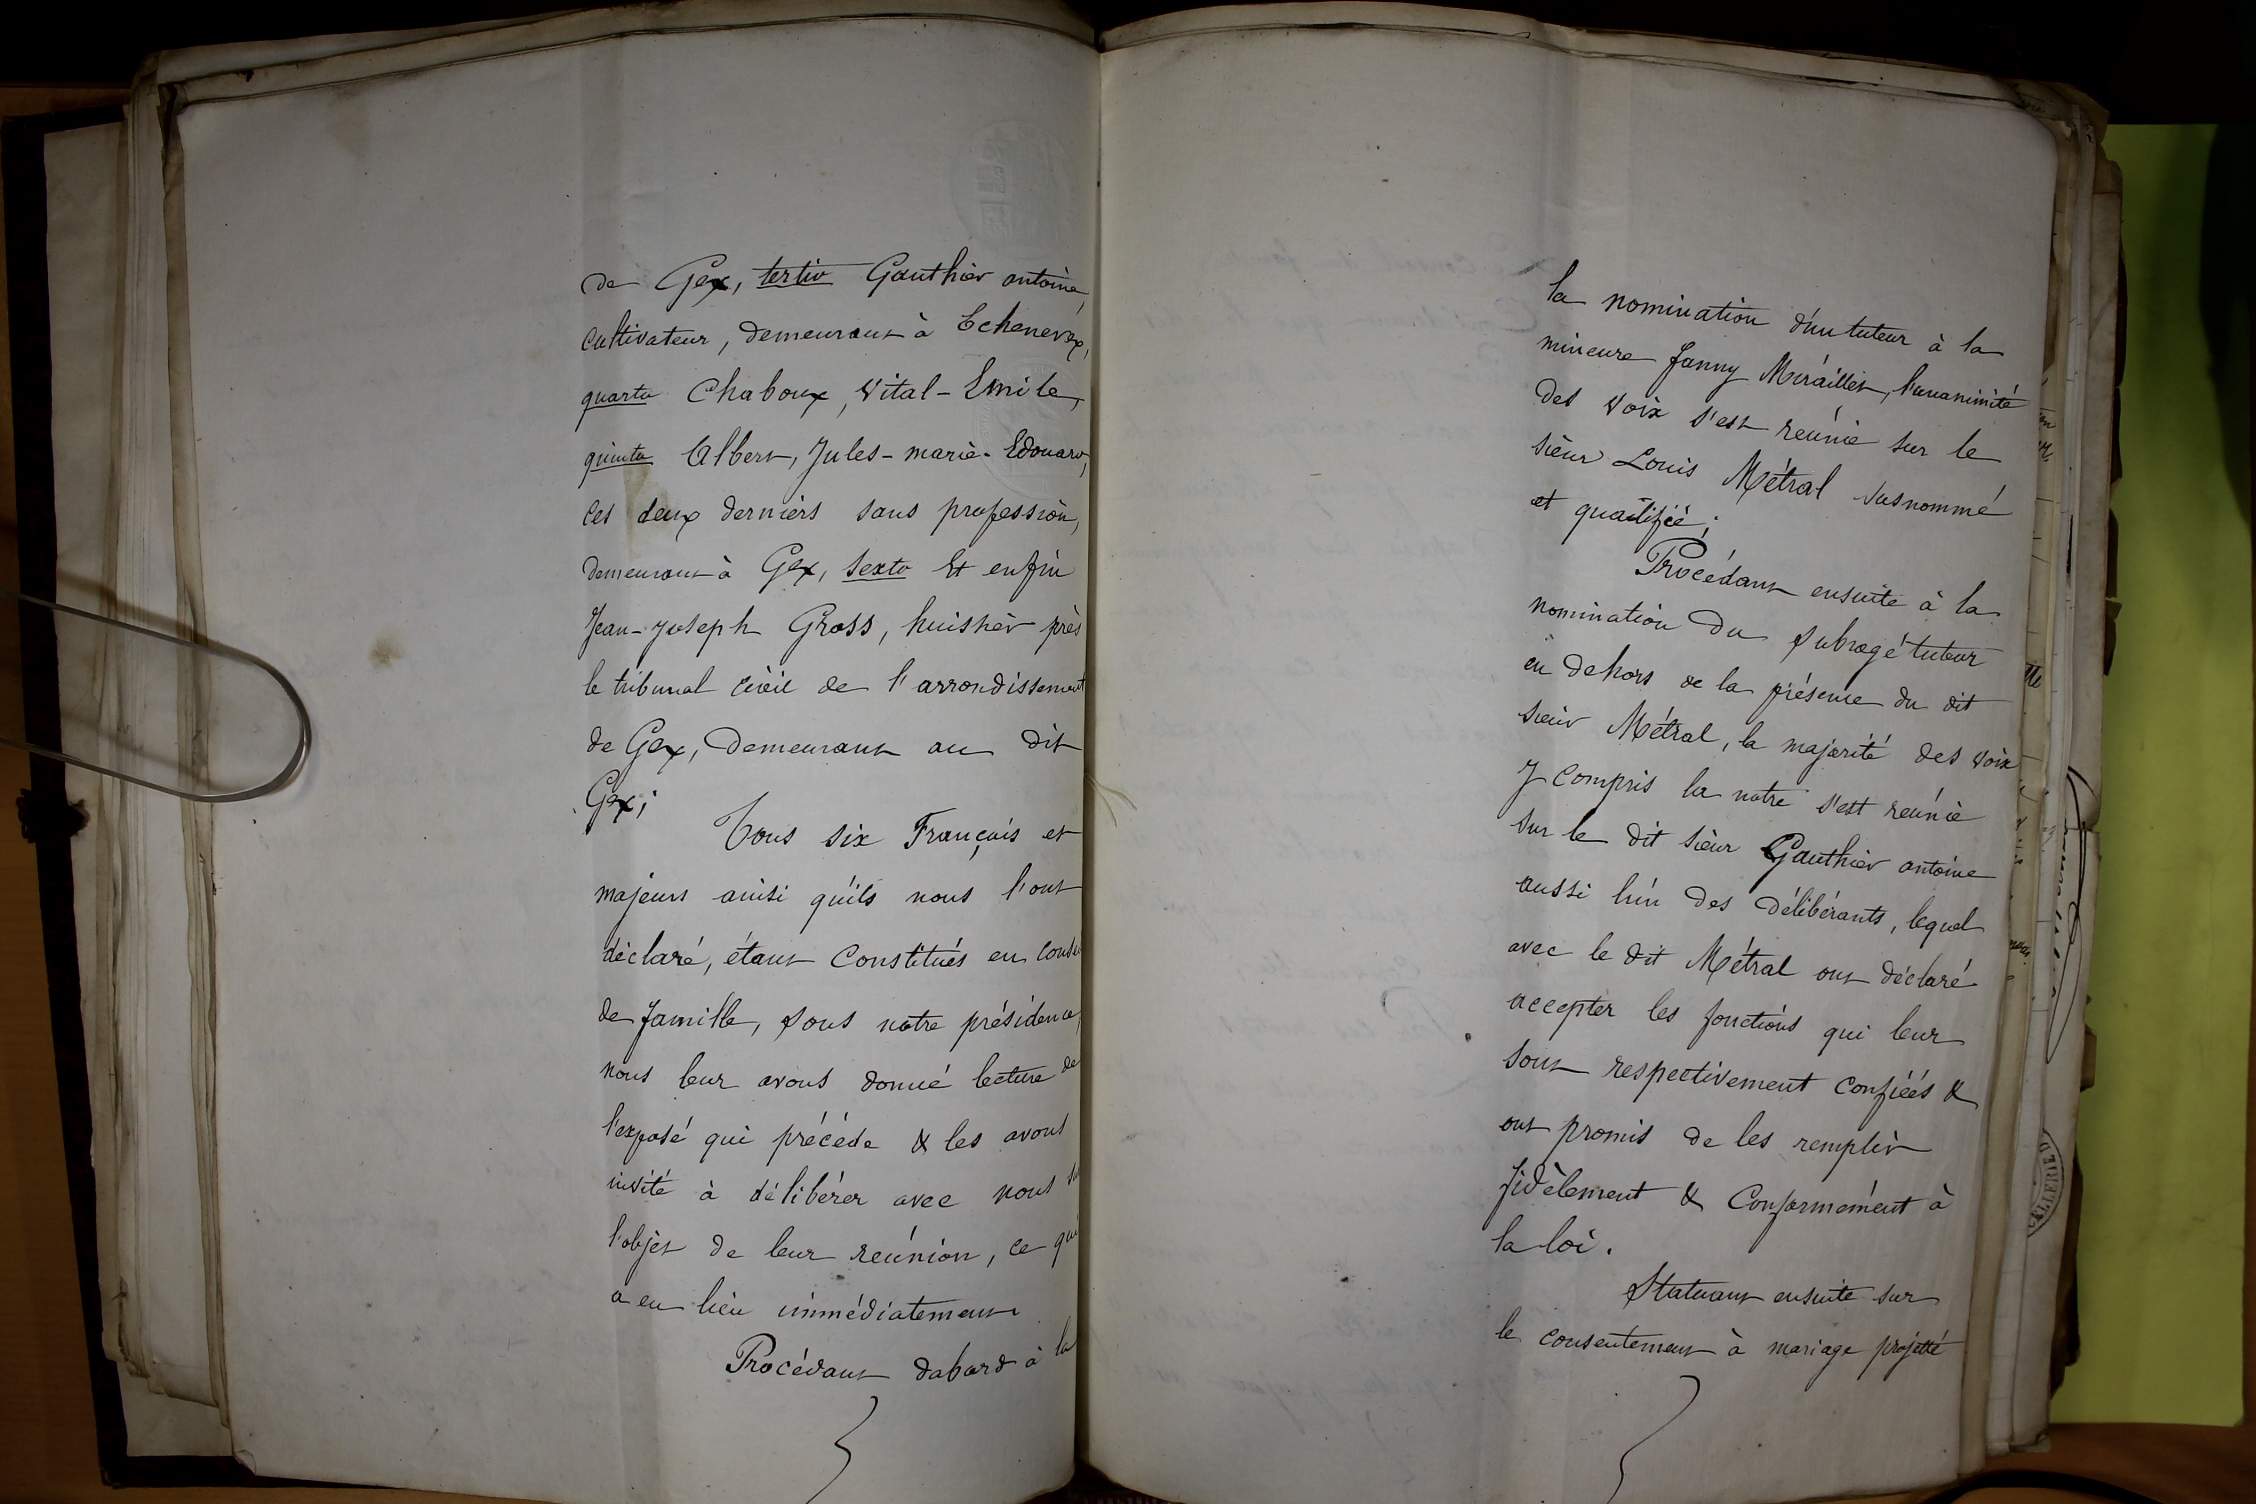 de Gex, tertio Gauthier antoine,
cultivateur, demeurant à Echenevex,
quarto Chaboux, Vital-Emile,
quinto Albert, Jules-marie-Edouard,
ces deux derniers sans profession,
demeurant à Gex, sexto Et enfin
Jean-Joseph Gross, huissier près
le tribunal civil de l'arrondissement
de Gex, demeurant au dit
Gex;
Tous six Français et
majeurs ainsi qu'ils nous l'ont
déclaré, étant constitués en conseil
de famille, sous notre présidence,
nous leur avons donné lecture de
l'exposé qui précède & les avons
invité à délibérer avec nous sur
l'objet de leur reúnion, ce qui
a eu lieu immédiatement.
Procédant dabord à la
la nomination d'un tuteur à la
mineure Fanny Mérailler, l'unanimité
des voix s'est reúnie sur le
sieur Louis Métral susnommé
et qualifié;
Procédant ensuite à la
nomination du subrogé tuteur
en dehors de la présence du dit
sieur Métral, la majorité des voix
y compris la notre s'est reúnie
sur le dit sieur Gauthier antoine
aussi l'un des délibérants, lequel
avec le dit Métral ont déclaré
accepter les fonctions qui leur
sont respectivement confiéés &
ont promis de les remplir
fidèlement & Conformément à
la loi.
Statuant ensuite sur
le consentement à mariage projetté